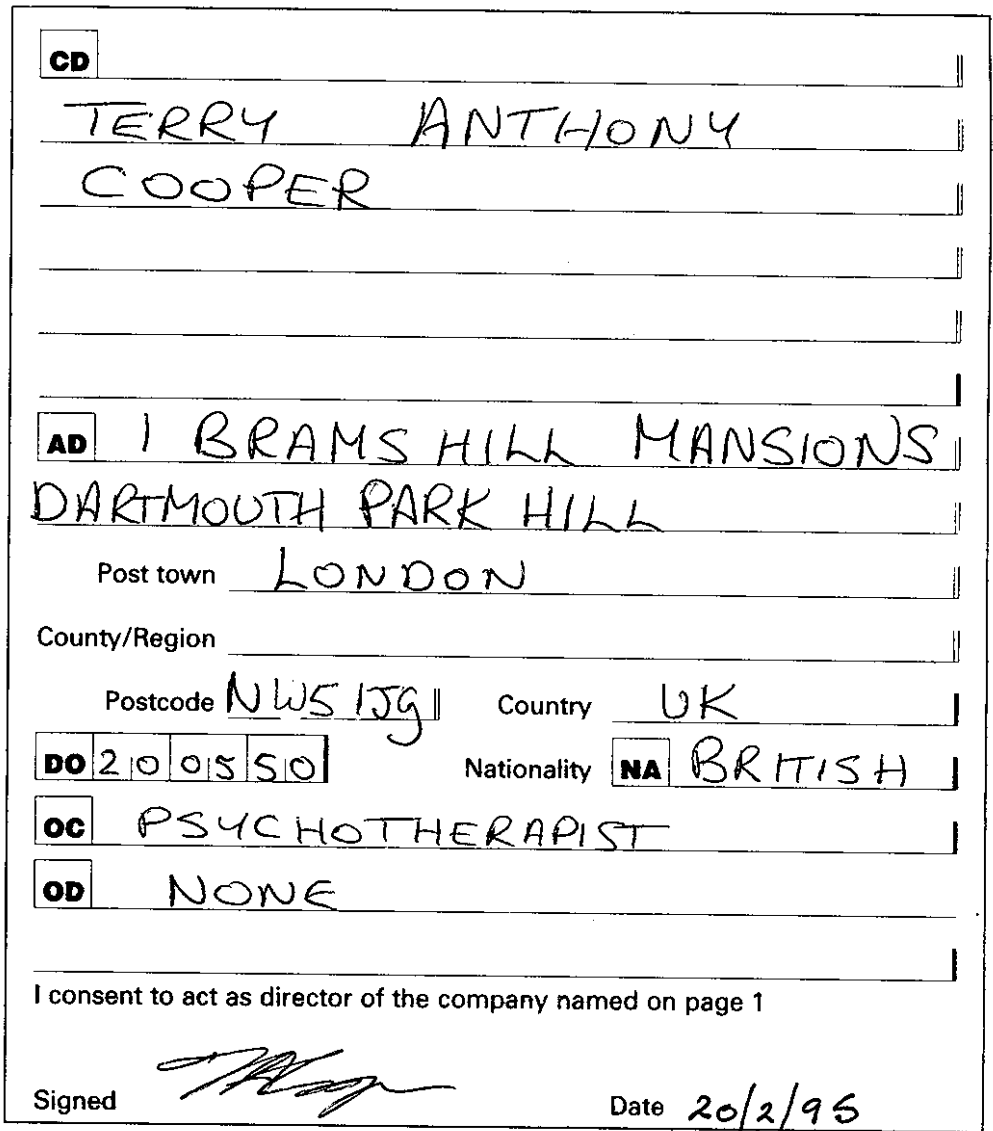 CD
TERRY ANTHONY
COOPER
AD 1 BRAMSHILL MANSIONS
DARTMOUTH PARK HILL
Post town LONDON
County/Region
Postcode NW5 1JG Country UK
DO 20 05 50 Nationality NA BRITISH
OC PSYCHOTHERAPIST
OD NONE
I consent to act as director of the company named on page 1
Signed Date 20/2/95